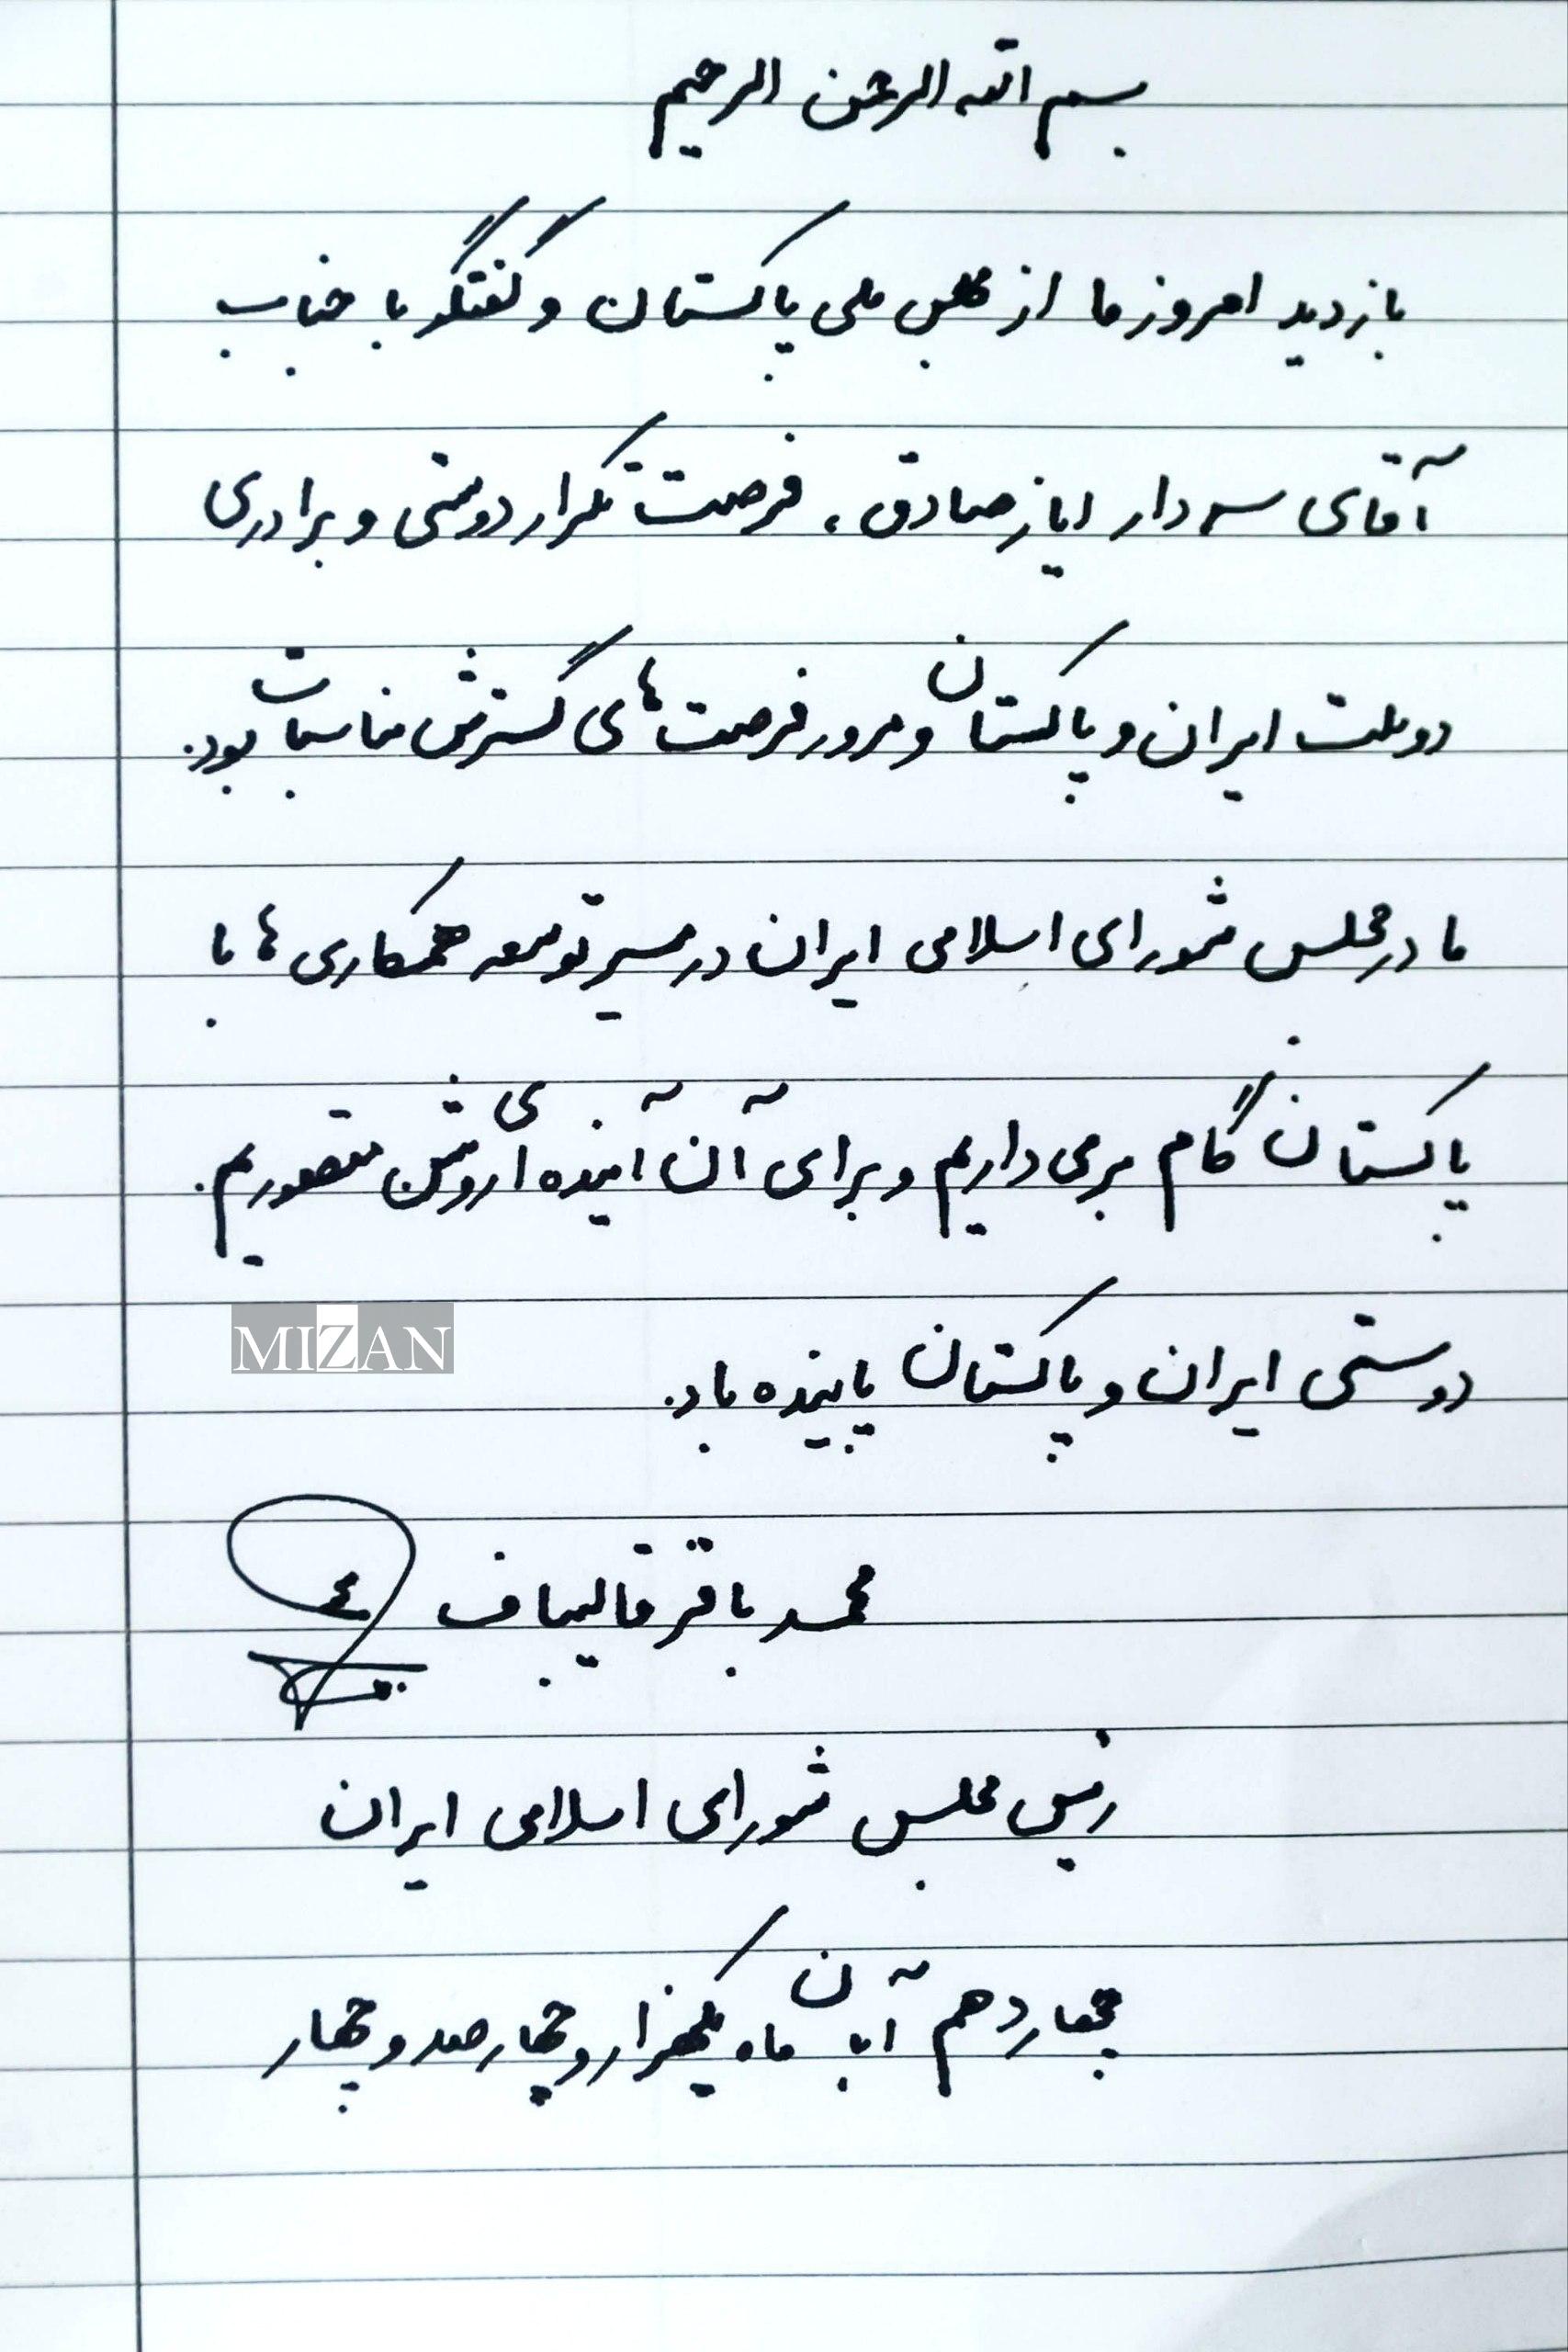 بسم الله الرحمن الرحیم
بازدید امروز ما از مجلس ملی پاکستان و گفتگو با جناب
آقای سردار ایاز صادق، فرصت تکرار دوستی و برادری
دو ملت ایران و پاکستان و مرور فرصت های گسترش مناسبات بود.
ما در مجلس شورای اسلامی ایران در مسیر توسعه همکاری ها با
پاکستان گام برمی داریم و برای آن آینده ای روشن متصوریم.
MIZAN
دوستی ایران و پاکستان پاینده باد.
محمد باقر قالیباف
رئیس مجلس شورای اسلامی ایران
چهاردهم آبان ماه یکهزار و چهارصد و چهار